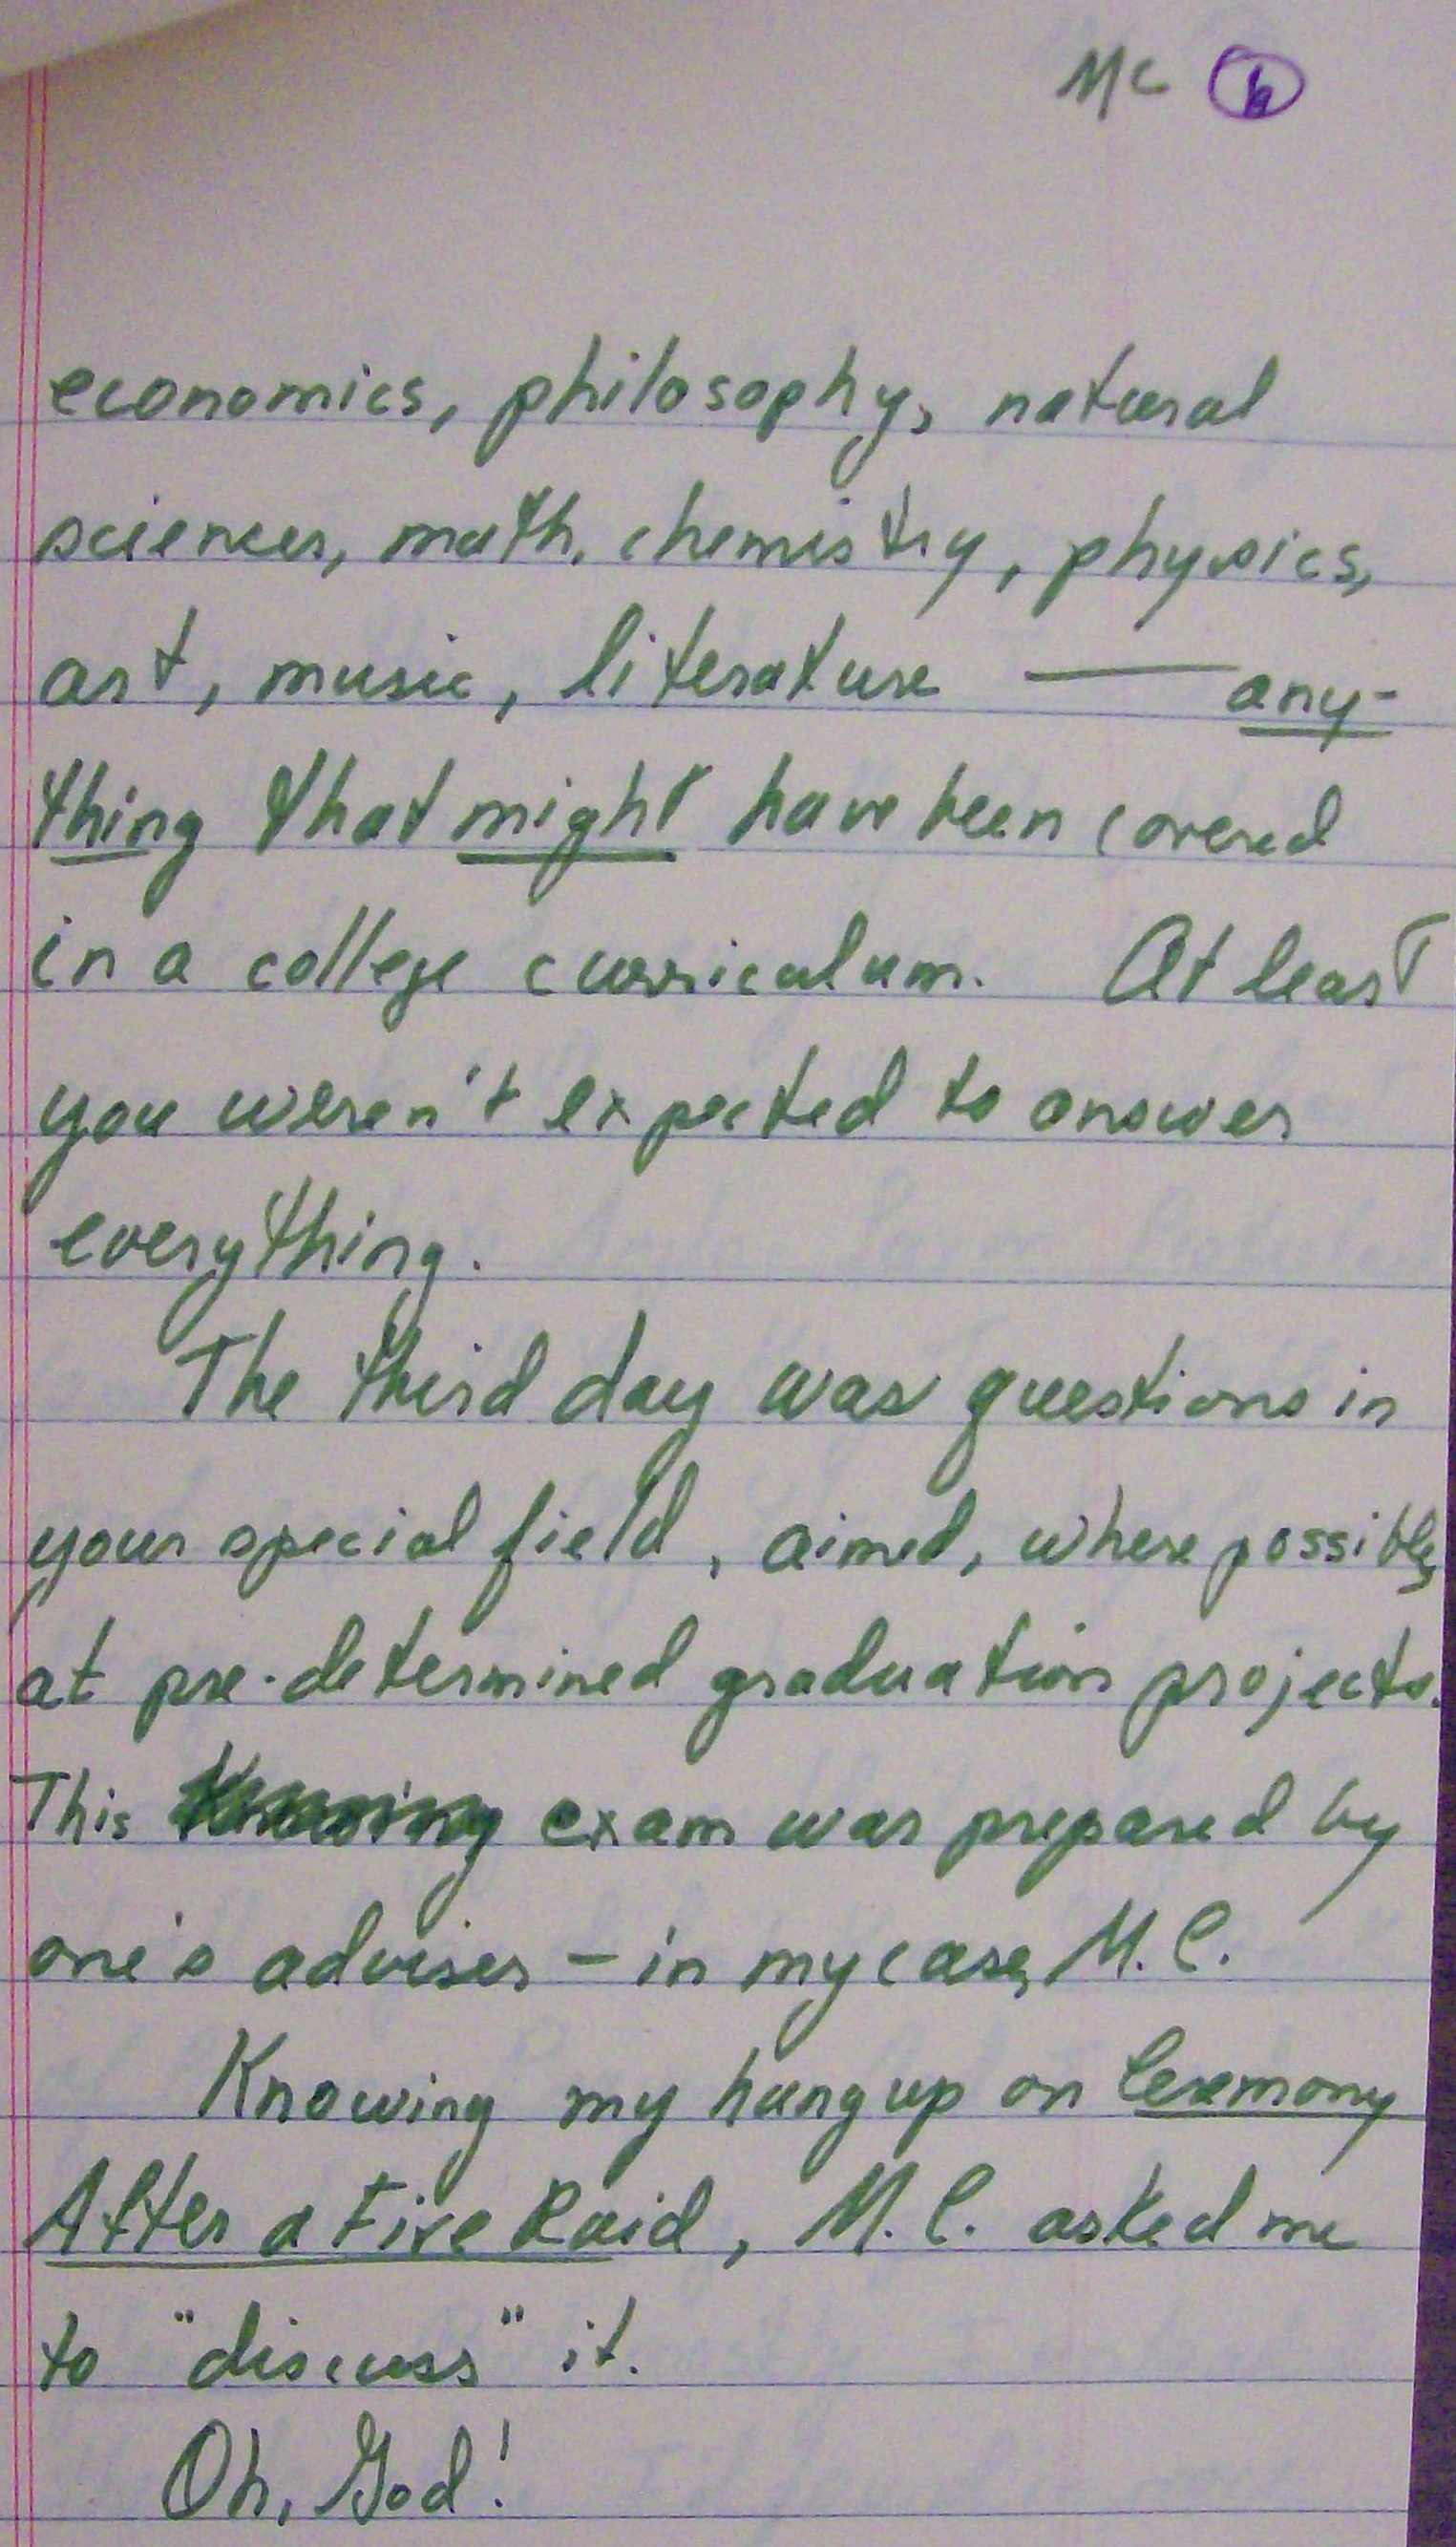 MC
economics, philosophy, natural
sciences, math, chemistry, physics,
art, music, literature — any-
thing that might have been covered
in a college curriculum. At least
you weren't expected to answer
everything.
The third day was questions in
your special field, aimed, where possible,
at pre-determined graduation projects.
This exam was prepared by
one's adviser – in my case, M.C.
Knowing my hang up on Ceremony
After a Fire Raid, M.C. asked me
to "discuss" it.
Oh, God!